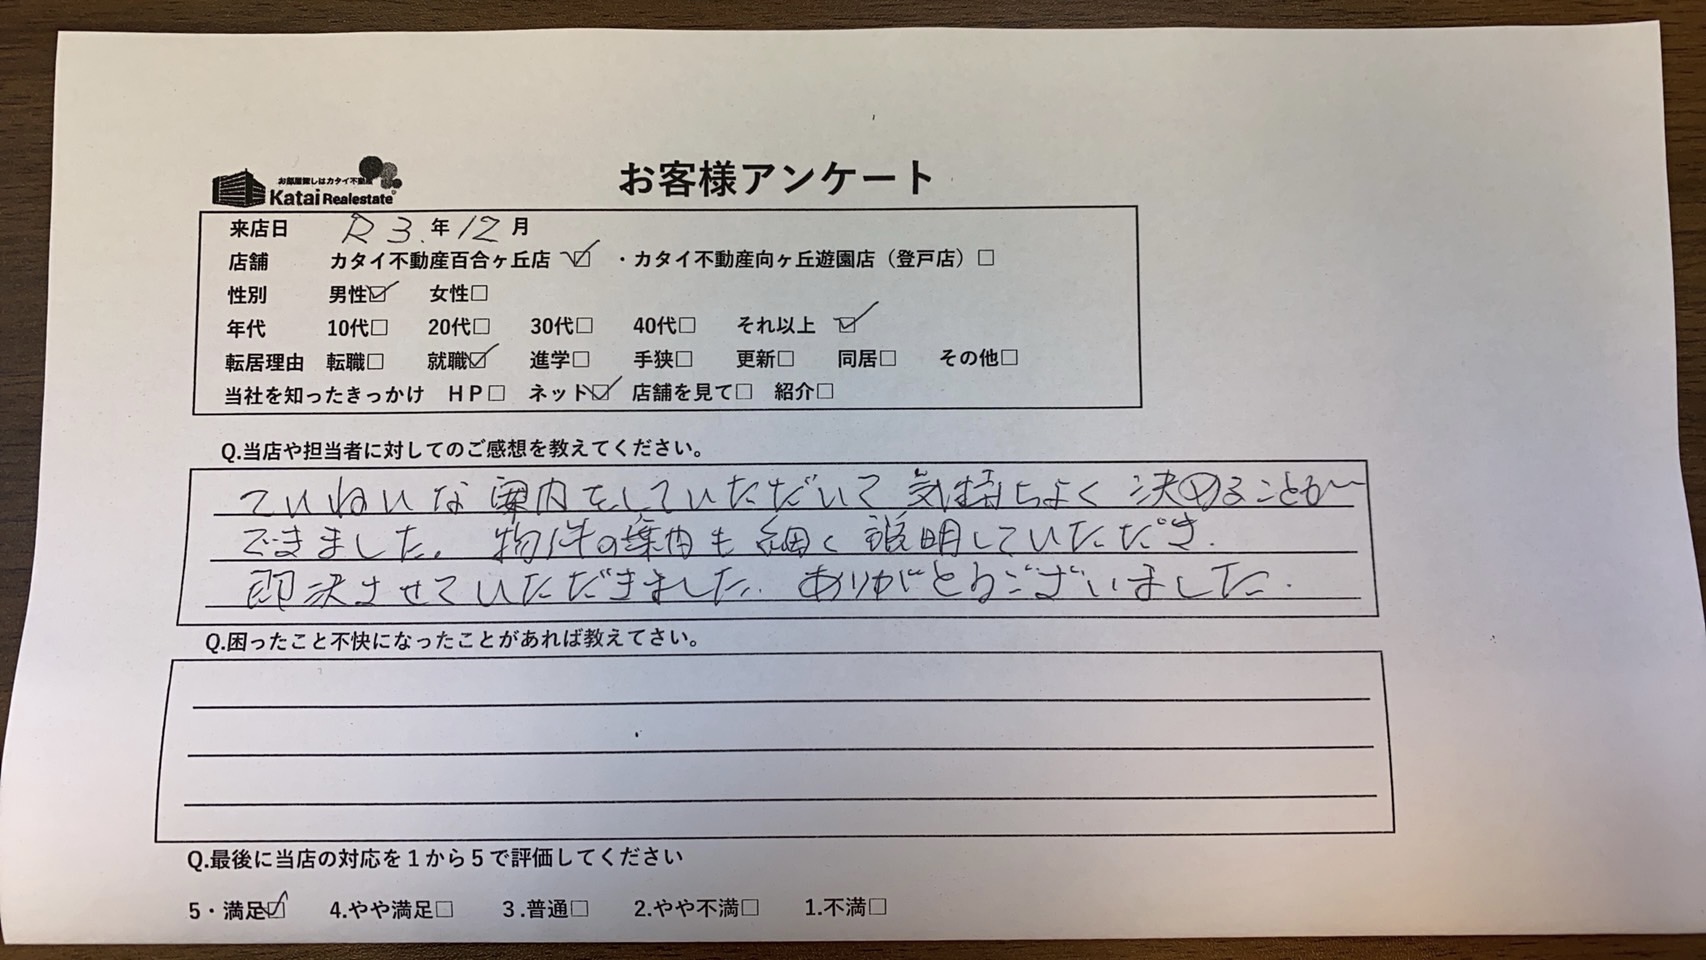 お部屋探しはカタイ不動産
Katai Realestate
お客様アンケート
来店日 R3.年12月
店舗 カタイ不動産百合ヶ丘店☑ ・カタイ不動産向ヶ丘遊園店（登戸店）□
性別 男性☑ 女性□
年代 10代□ 20代□ 30代□ 40代□ それ以上 ☑
転居理由 転職□ 就職☑ 進学□ 手狭□ 更新□ 同居□ その他□
当社を知ったきっかけ ＨＰ□ ネット☑ 店舗を見て□ 紹介□
Q.当店や担当者に対してのご感想を教えてください。
ていねいな案内をしていただいて気持ちよく決めることが〜
できました。物件の案内も細く説明していただき.
即決させていただきました. ありがとうございました.
Q.困ったこと不快になったことがあれば教えてさい。
Q.最後に当店の対応を１から５で評価してください
5・満足☑ 4.やや満足□ ３.普通□ 2.やや不満□ 1.不満□